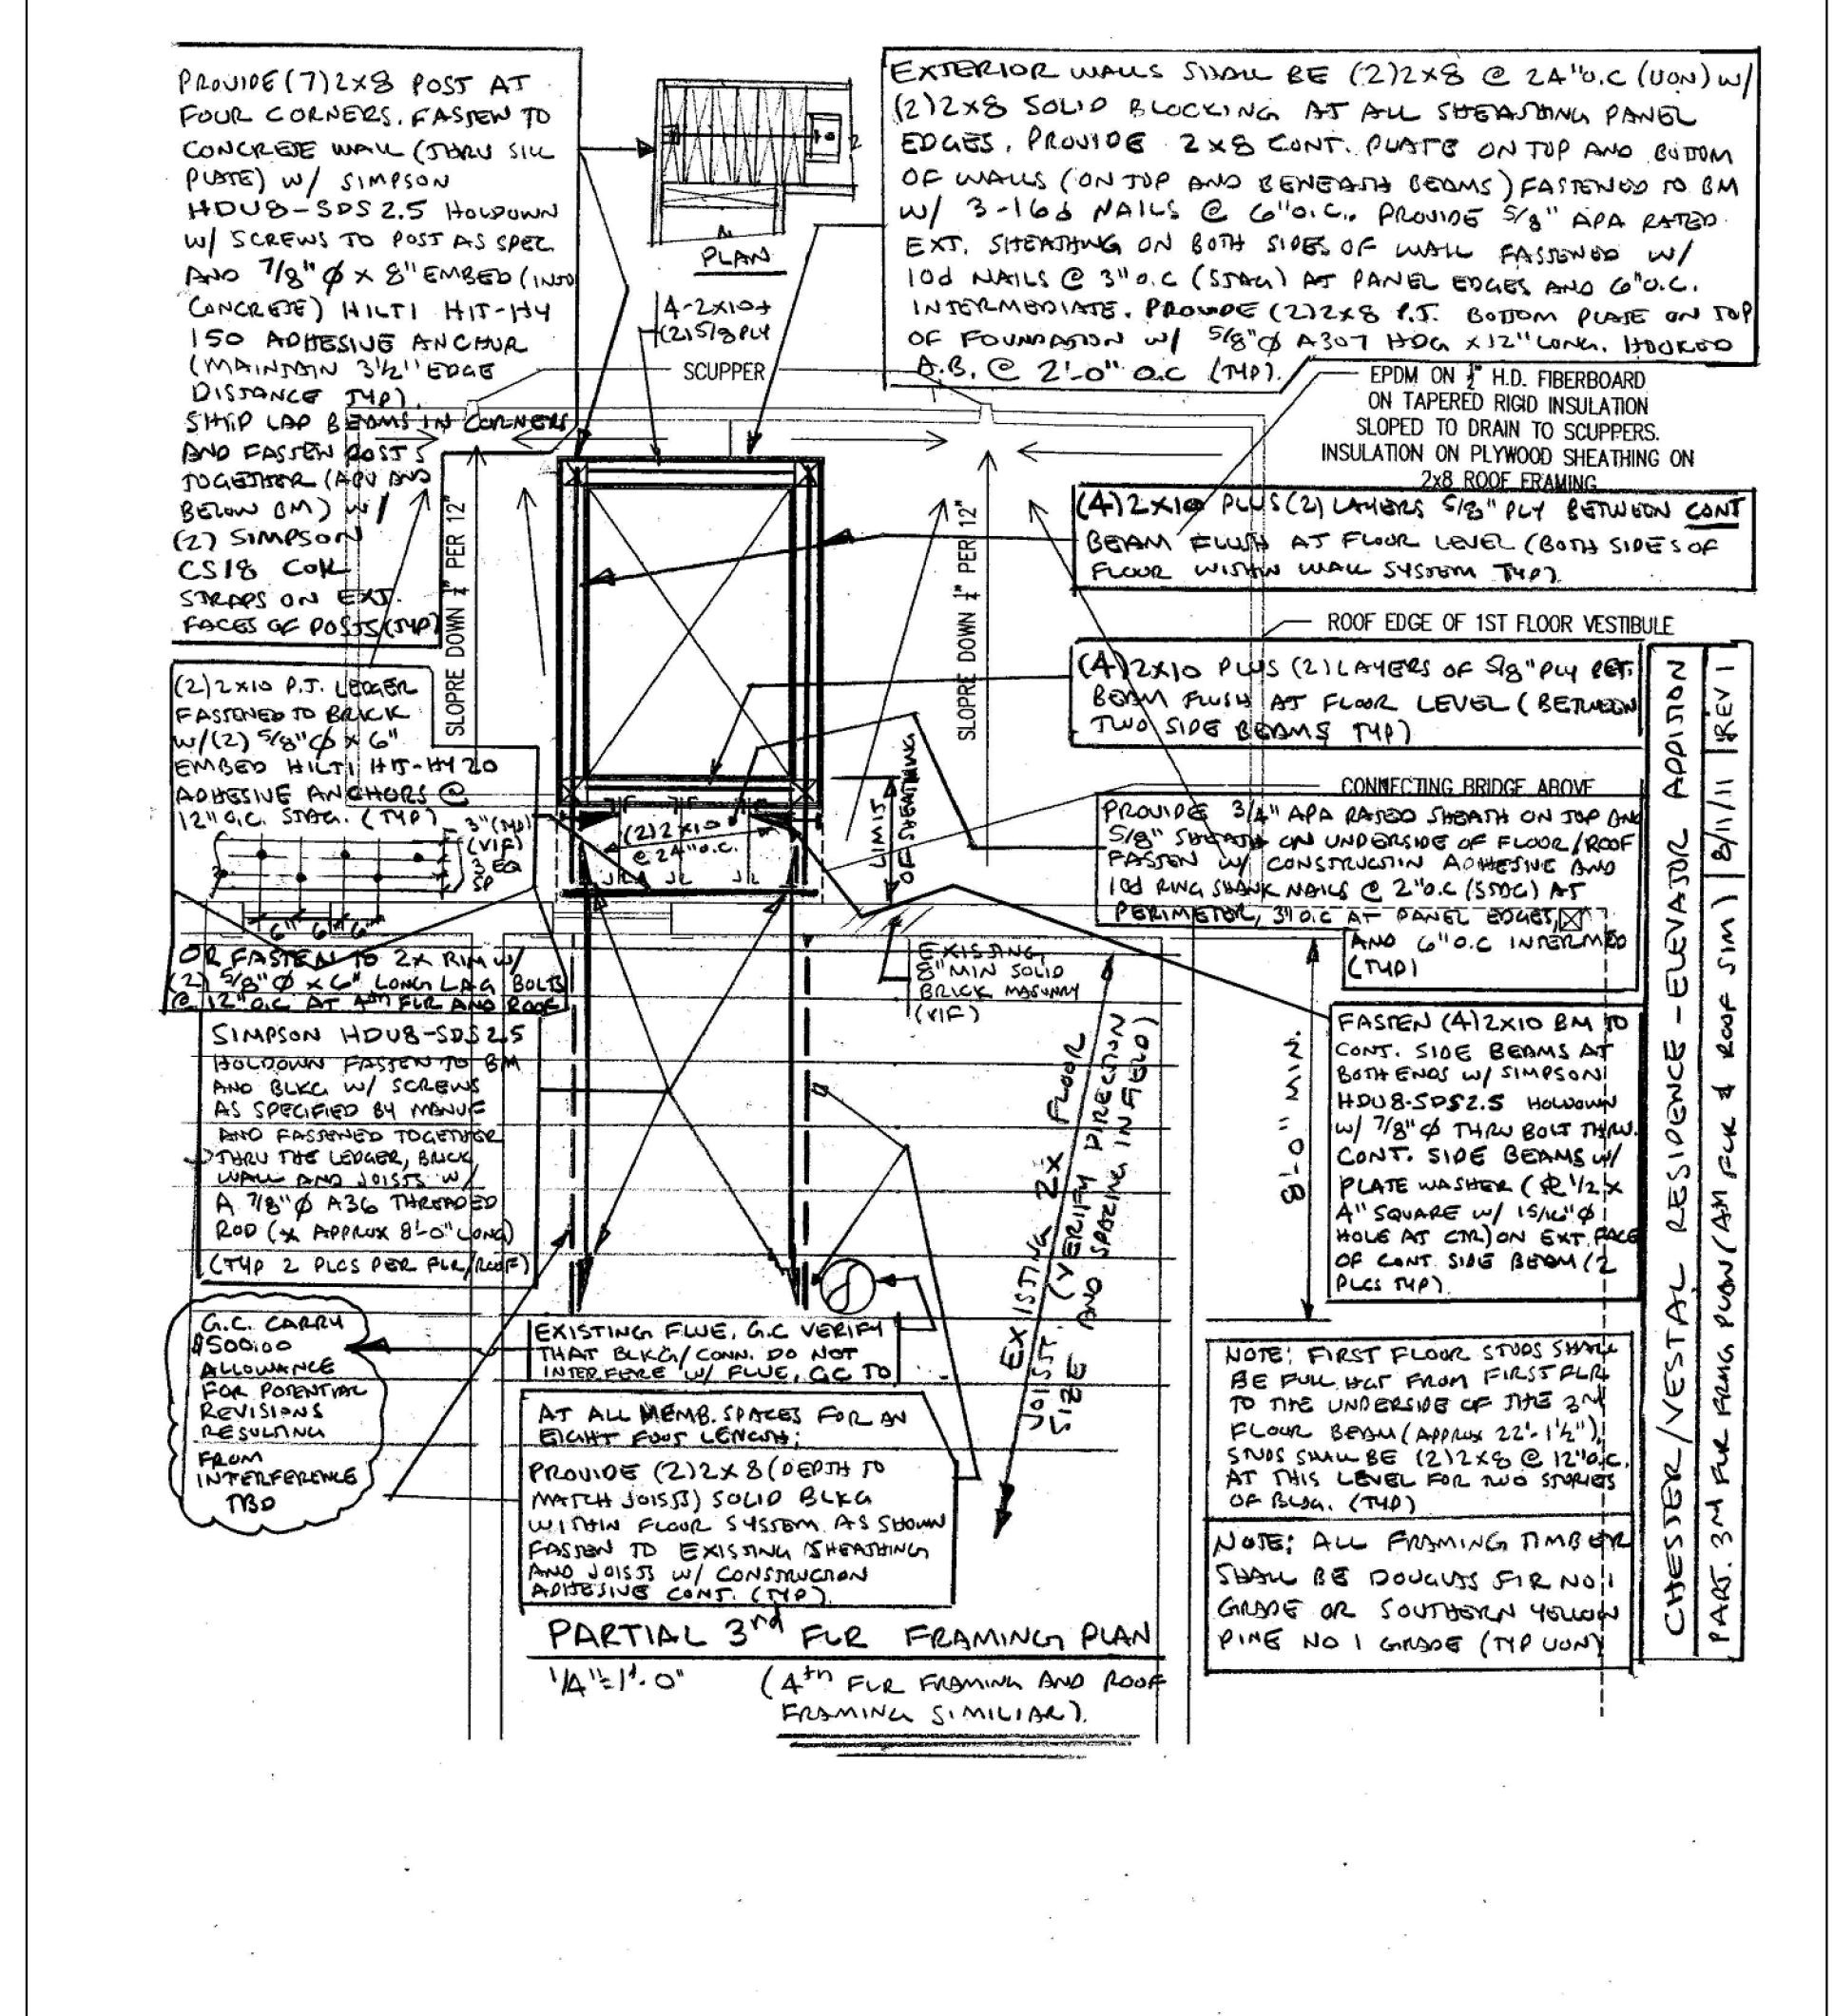 PROVIDE (7) 2x8 POST AT
FOUR CORNERS. FASTEN TO
CONCRETE WALL (THRU SILL
PLATE) W/ SIMPSON
HDU8-SDS2.5 HOLDOWN
W/ SCREWS TO POST AS SPEC
AND 7/8"Ø x 8" EMBED (INTO
CONCRETE) HILTI HIT-HY
150 ADHESIVE ANCHOR
(MAINTAIN 3½" EDGE
DISTANCE TYP).
SHIP LAP BEAMS IN CORNERS
AND FASTEN POSTS
TOGETHER (ABV AND
BELOW BM) W/
(2) SIMPSON
CS18 COIL
STRAPS ON EXT.
FACES OF POSTS (TYP)
PLAN
4-2x10+
(2) 5/8 PLY
SCUPPER
EXTERIOR WALLS SHALL BE (2) 2x8 @ 24" O.C (UON) W/
(2) 2x8 SOLID BLOCKING AT ALL SHEATHING PANEL
EDGES. PROVIDE 2x8 CONT. PLATE ON TOP AND BOTTOM
OF WALLS (ON TOP AND BENEATH BEAMS) FASTENED TO BM
W/ 3-16d NAILS @ 6" O.C.. PROVIDE 5/8" APA RATED
EXT. SHEATHING ON BOTH SIDES OF WALL FASTENED W/
10d NAILS @ 3" O.C (STAG) AT PANEL EDGES AND 6" O.C.
INTERMEDIATE. PROVIDE (2) 2x8 P.T. BOTTOM PLATE ON TOP
OF FOUNDATION W/ 5/8"Ø A307 HDG x 12" LONG. HOOKED
A.B. @ 2'-0" O.C (TYP).
EPDM ON ½" H.D. FIBERBOARD
ON TAPERED RIGID INSULATION
SLOPED TO DRAIN TO SCUPPERS.
INSULATION ON PLYWOOD SHEATHING ON
2x8 ROOF FRAMING
(4) 2x10 PLUS (2) LAYERS 5/8" PLY BETWEEN CONT
BEAM FLUSH AT FLOOR LEVEL (BOTH SIDES OF
FLOOR WITHIN WALL SYSTEM TYP)
SLOPRE DOWN ¼" PER 12"
SLOPRE DOWN ¼" PER 12"
ROOF EDGE OF 1ST FLOOR VESTIBULE
(4) 2x10 PLUS (2) LAYERS OF 5/8" PLY BET.
BEAM FLUSH AT FLOOR LEVEL (BETWEEN
TWO SIDE BEAMS TYP)
(2) 2x10 P.T. LEDGER
FASTENED TO BRICK
W/ (2) 5/8"Ø x 6"
EMBED HILTI HIT-HY 20
ADHESIVE ANCHORS @
12" O.C. STAG. (TYP)
3" (TYP)
(VIF)
3 EQ
SP
6" 6" 6"
OR FASTEN TO 2x RIM W/
(2) 5/8"Ø x 6" LONG LAG BOLTS
@ 12" O.C AT 4th FLR AND ROOF
(2) 2x10
@ 24" O.C.
LIMITS
OF SHEATHING
CONNECTING BRIDGE ABOVE
PROVIDE 3/4" APA RATED SHEATH ON TOP AND
5/8" SHEATH ON UNDERSIDE OF FLOOR/ROOF
FASTEN W/ CONSTRUCTIN ADHESIVE AND
10d RING SHANK NAILS @ 2" O.C (STAG) AT
PERIMETER, 3" O.C AT PANEL EDGES,
AND 6" O.C INTERMED
(TYP)
EXISTING,
8" MIN SOLID
BRICK MASONRY
(VIF)
SIMPSON HDU8-SDS2.5
HOLDOWN FASTEN TO BM
AND BLKG W/ SCREWS
AS SPECIFIED BY MANUF
AND FASTENED TOGETHER
THRU THE LEDGER, BRICK
WALL AND JOISTS W/
A 7/8"Ø A36 THREADED
ROD (x APPROX 8'-0" LONG)
(TYP 2 PLCS PER FLR/ROOF)
EXISTING 2x FLOOR
JOIST. (VERIFY DIRECTION
SIZE AND SPACING IN FIELD)
8'-0" MIN.
FASTEN (4) 2x10 BM TO
CONT. SIDE BEAMS AT
BOTH ENDS W/ SIMPSON
HDU8-SDS2.5 HOLDOWN
W/ 7/8"Ø THRU BOLT THRU.
CONT. SIDE BEAMS W/
PLATE WASHER (PL 1/2 x
4" SQUARE W/ 15/16"Ø
HOLE AT CTR) ON EXT. FACE
OF CONT. SIDE BEAM (2
PLCS TYP)
G.C. CARRY
$500.00
ALLOWANCE
FOR POTENTIAL
REVISIONS
RESULTING
FROM
INTERFERENCE
TBD
EXISTING FLUE. G.C VERIFY
THAT BLKG/CONN. DO NOT
INTERFERE W/ FLUE, GC TO
AT ALL MEMB. SPACES FOR AN
EIGHT FOOT LENGTH;
PROVIDE (2) 2x8 (DEPTH TO
MATCH JOISTS) SOLID BLKG
WITHIN FLOOR SYSTEM AS SHOWN
FASTEN TO EXISTING SHEATHING
AND JOISTS W/ CONSTRUCTION
ADHESIVE CONT. (TYP)
NOTE: FIRST FLOOR STUDS SHALL
BE FULL HGT FROM FIRST FLR
TO THE UNDERSIDE OF THE 3rd
FLOOR BEAM (APPROX 22'-1½").
STUDS SHALL BE (2) 2x8 @ 12" O.C.
AT THIS LEVEL FOR TWO STORIES
OF BLDG. (TYP)
NOTE: ALL FRAMING TIMBER
SHALL BE DOUGLAS FIR NO 1
GRADE OR SOUTHERN YELLOW
PINE NO 1 GRADE (TYP UON)
PARTIAL 3rd FLR FRAMING PLAN
1/4"=1'-0"
(4th FLR FRAMING AND ROOF
FRAMING SIMILIAR).
CHESTER/VESTAL RESIDENCE - ELEVATOR ADDITION
PART. 3rd FLR FRMG PLAN (4TH FLR & ROOF SIM) 8/11/11 REV 1